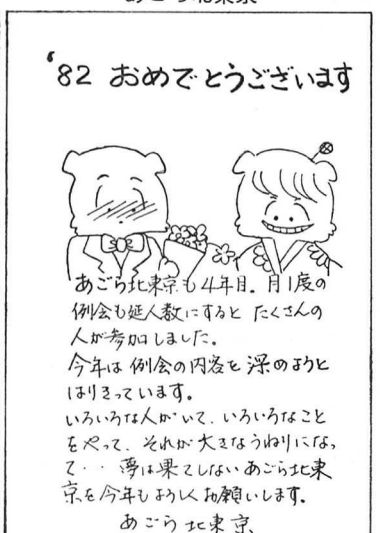 '82 おめでとうございます
あごら北東京も4年目。月1度の
例会も延人数にすると たくさんの
人が参加しました。
今年は 例会の内容を 深めようと
はりきっています。
いろいろな人がいて、いろいろなこと
をやって、それが大きなうねりになっ
て・・ 夢は果てしない あごら北東
京を今年もよろしくお願いします。
あごら 北東京